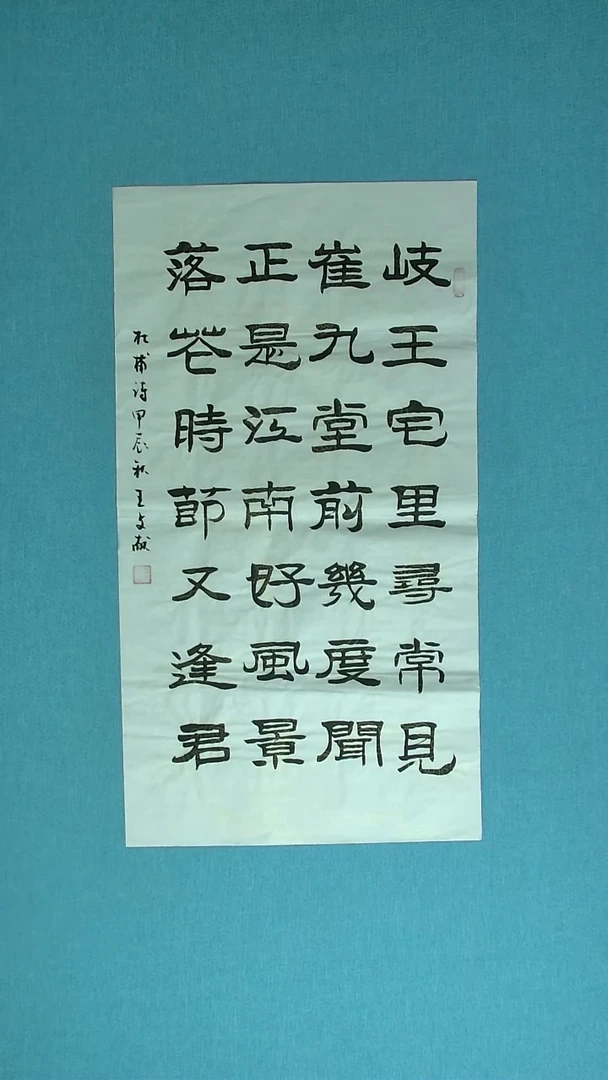 岐王宅里尋常見
崔九堂前幾度聞
正是江南好風景
落花時節又逢君
杜甫詩甲辰秋王文献